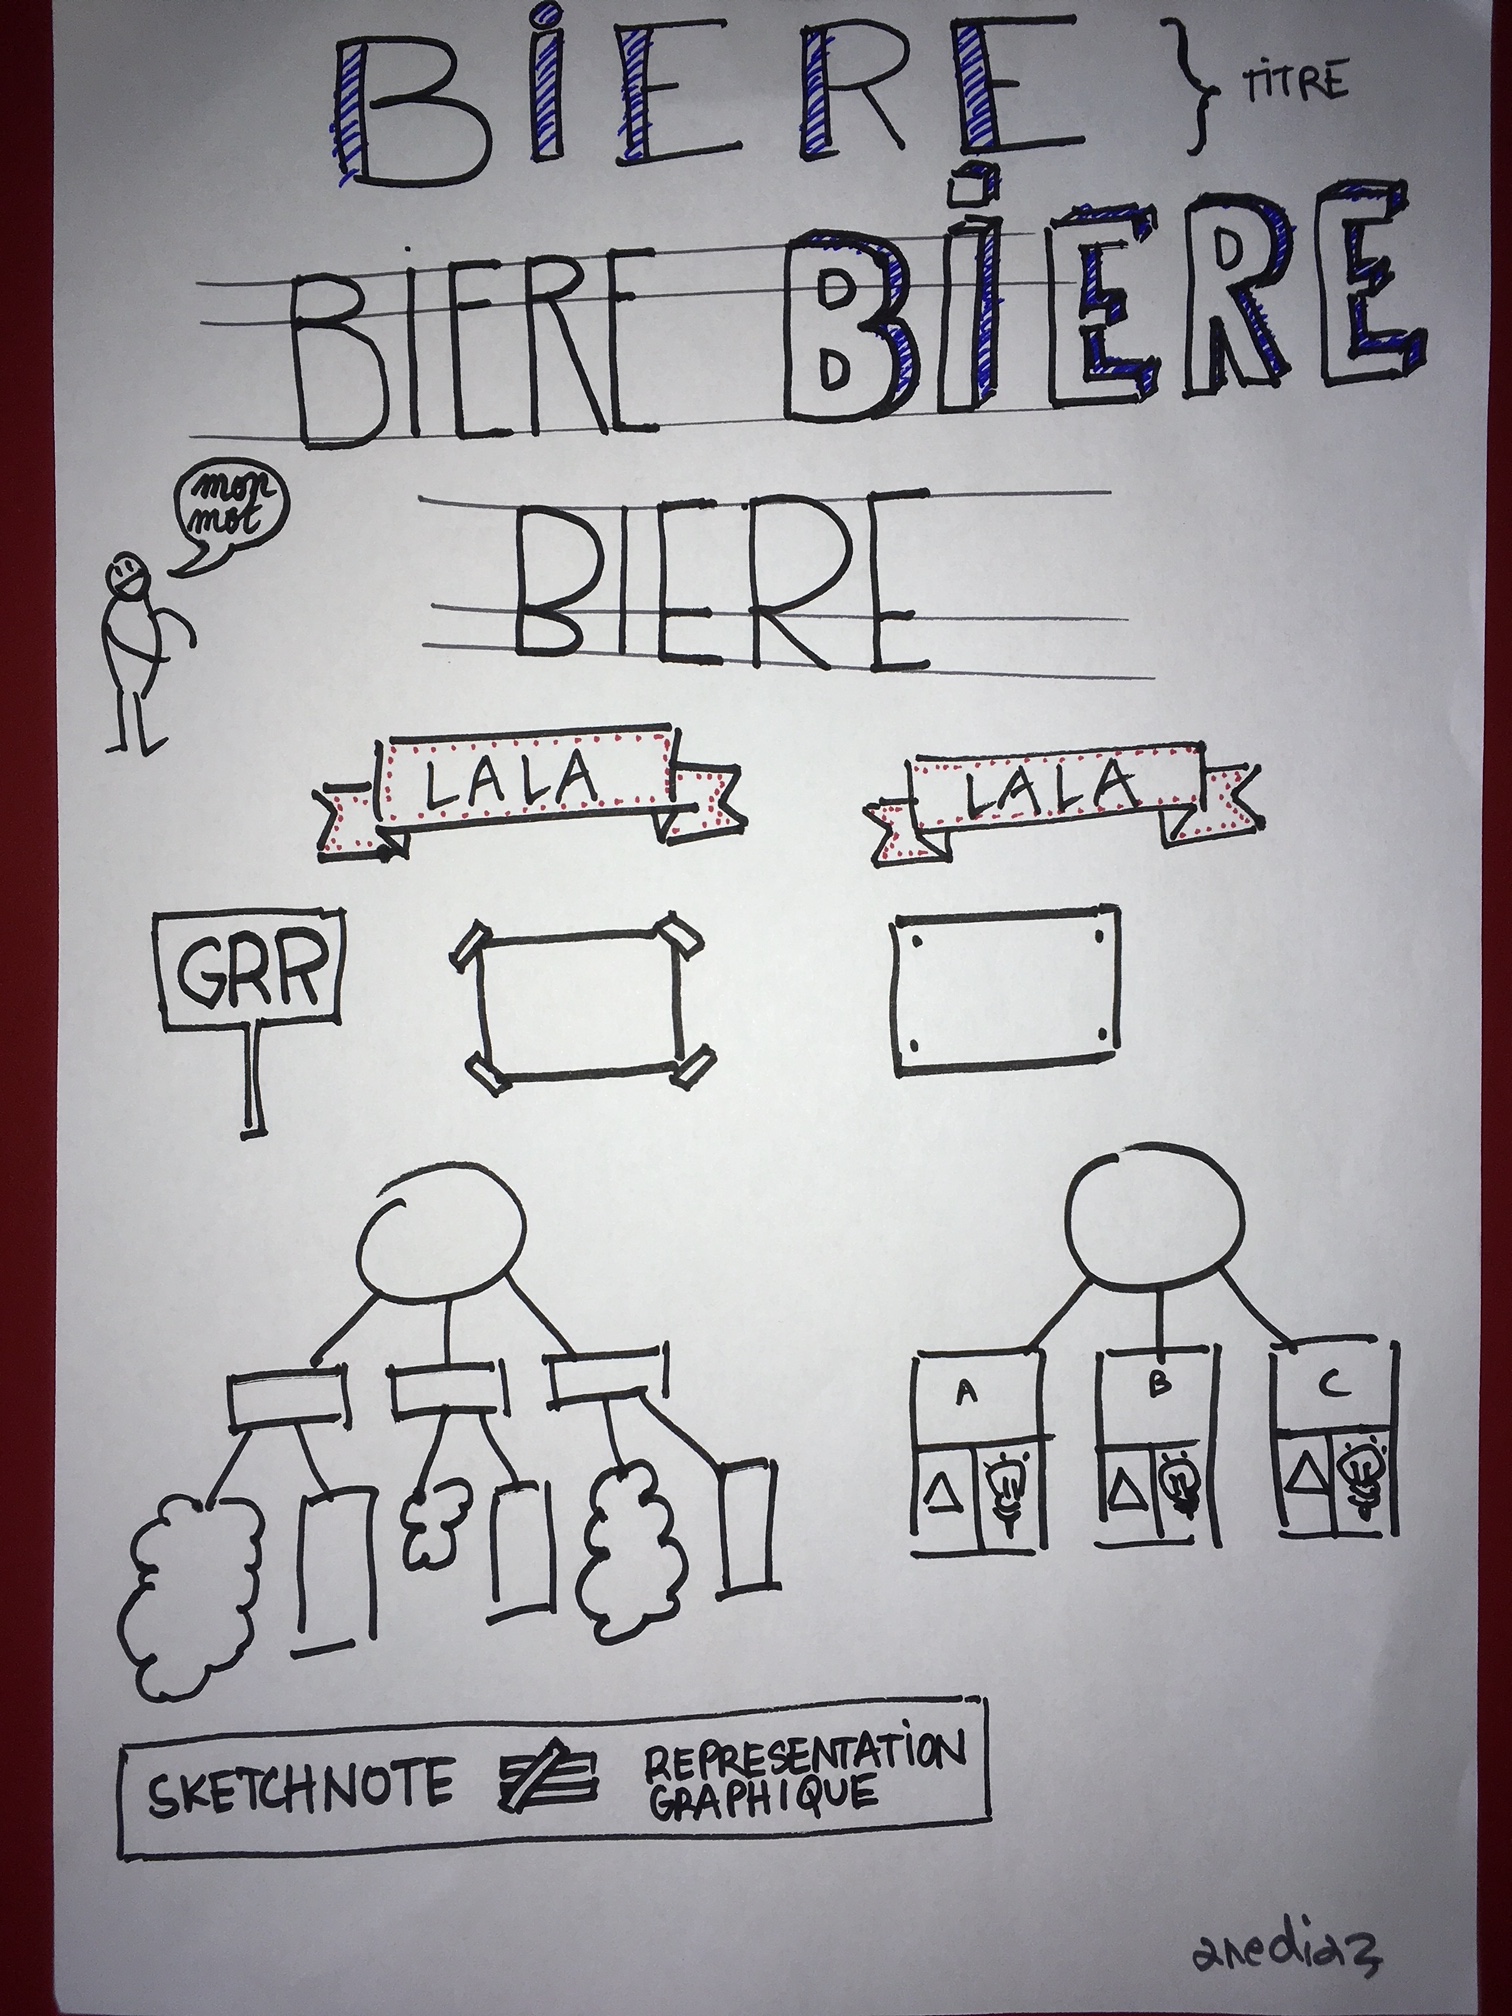 BiERE } TiTRE
BIERE BiERE
mon
mot
BIERE
LALA LALA
GRR
A B C
SKETCHNOTE ≠ REPRESENTATiON
GRAPHIQUE
anediaz